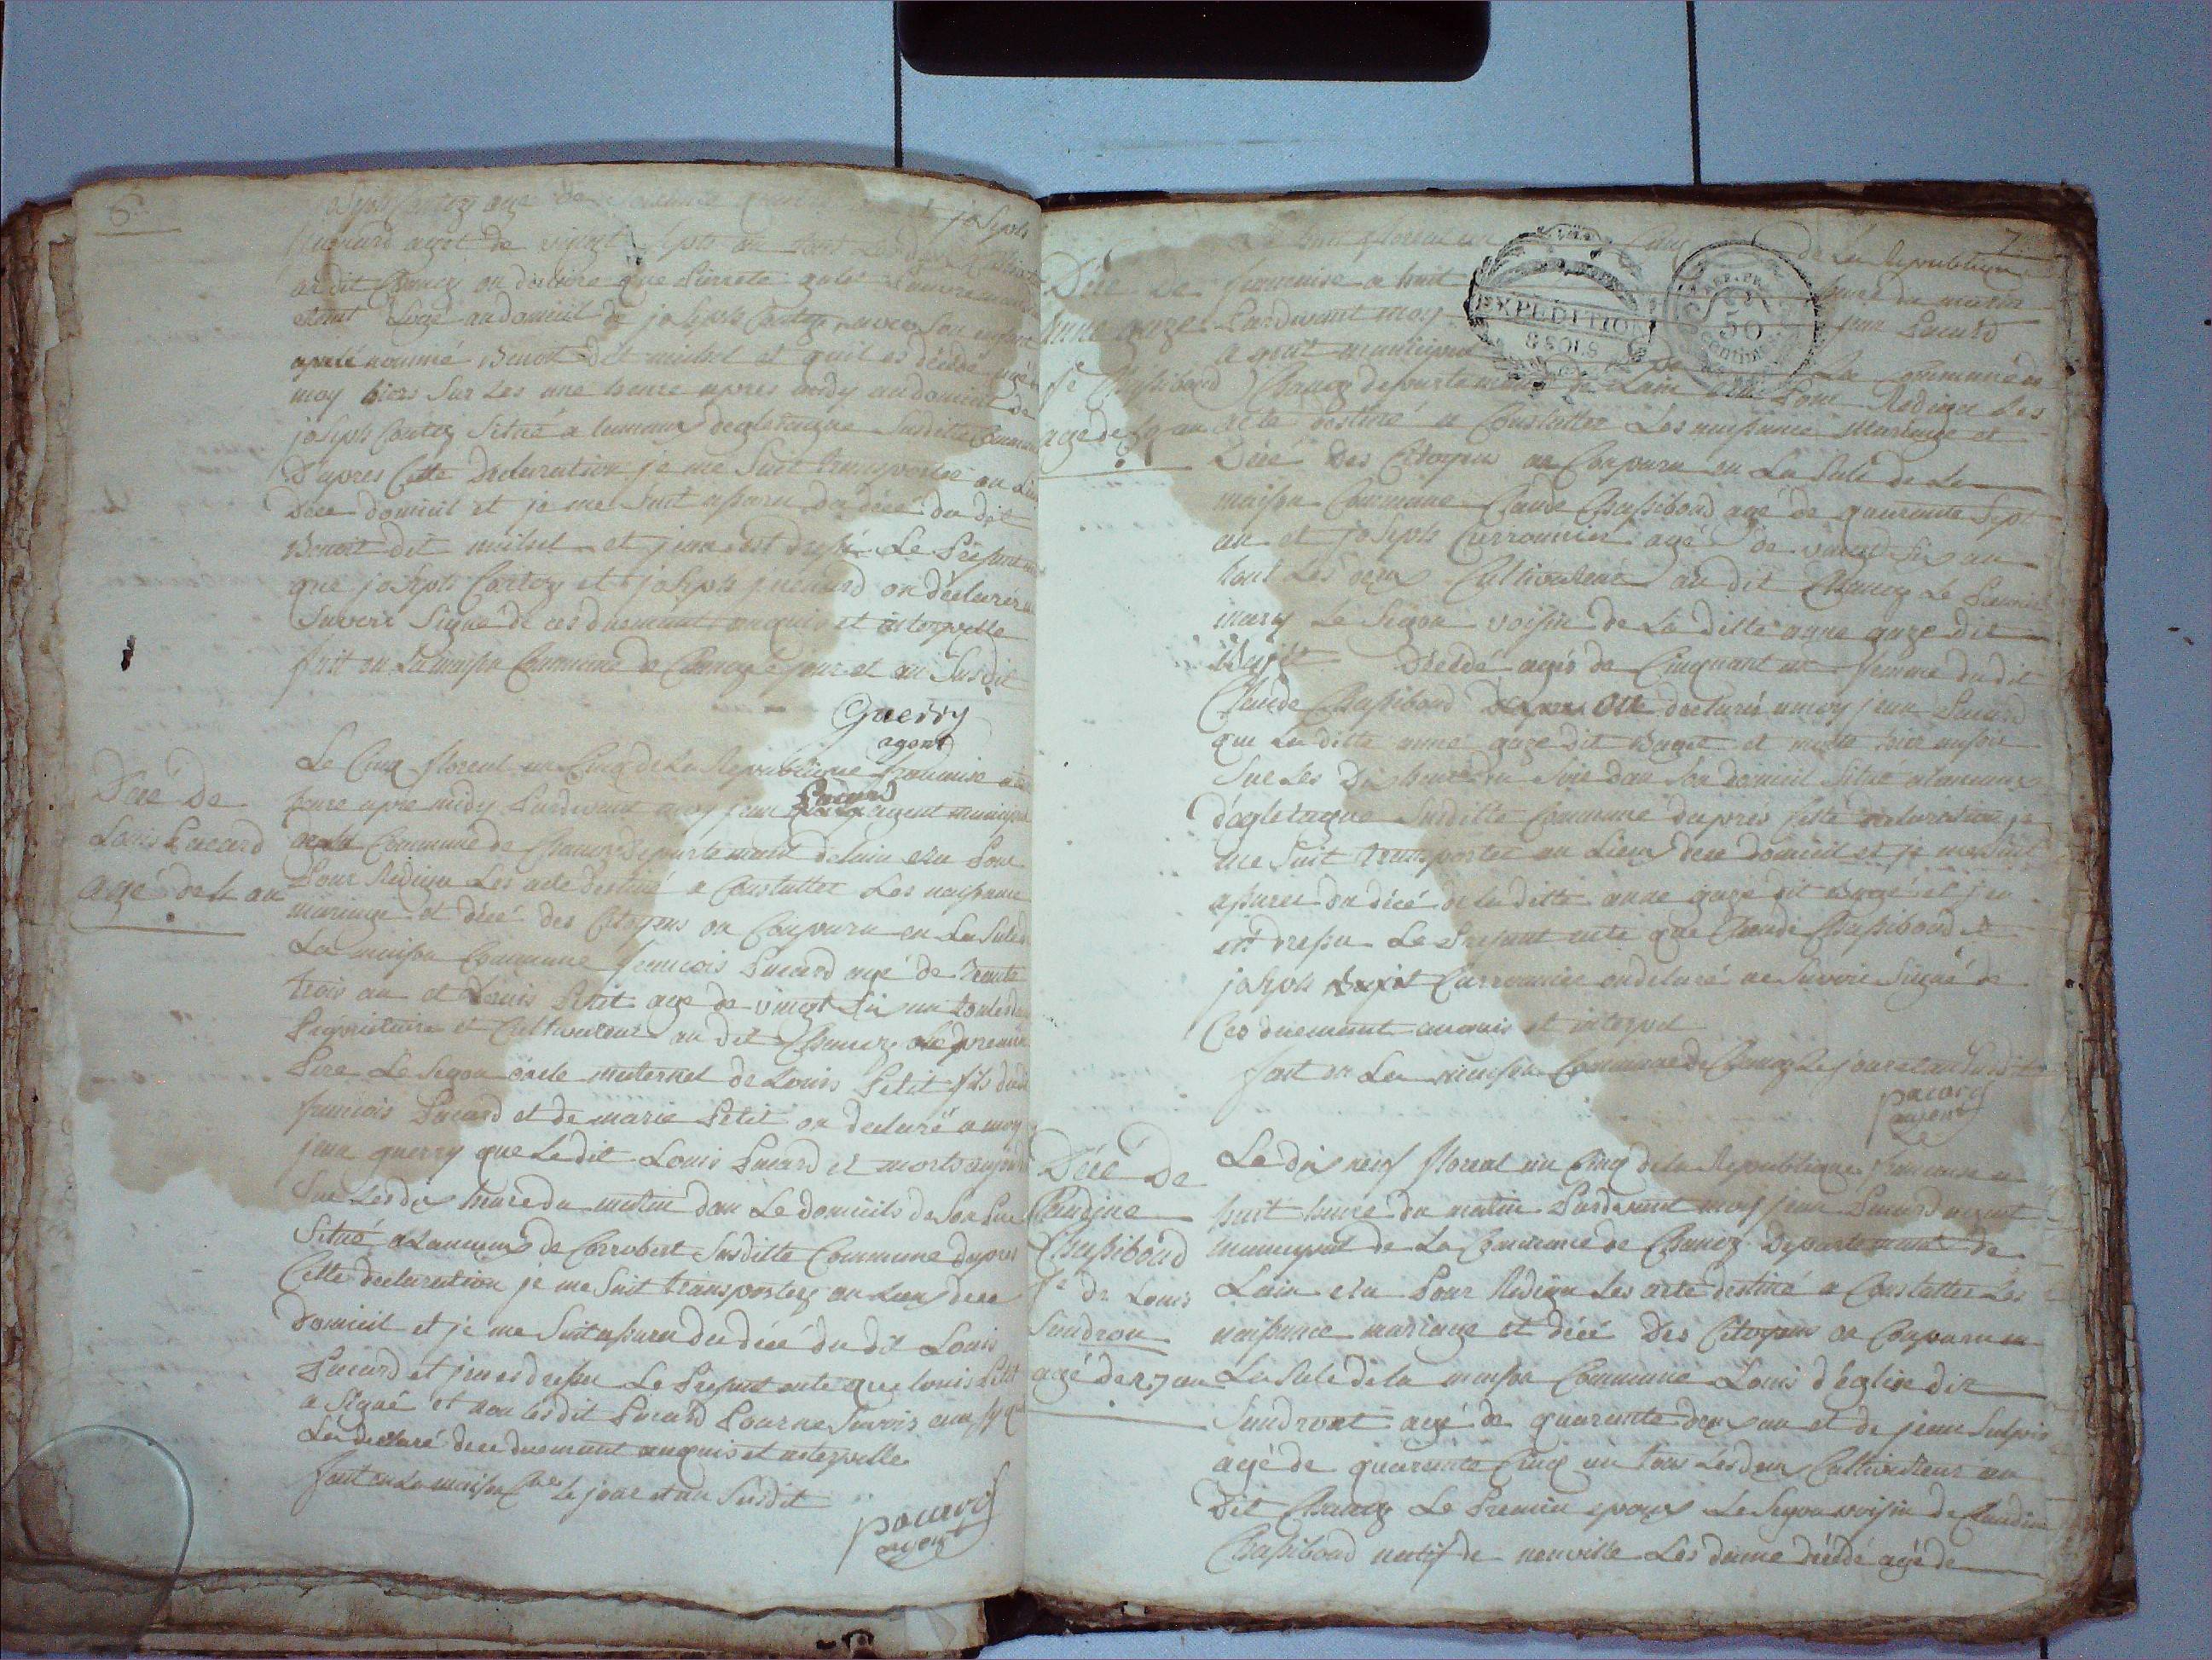 6
joseph Contez age de
joseph
age de vingt sept an
au dit Chanoz on declare que Pierrete
etant logé au domicil de joseph Contez avec son enfant
apelé nommé Benoit dit michel et quil es décédé
moy hier sur les une heure apres midy au domicil de
joseph Contez situé a lameaux degletagne susditte Commune
Dapres Cette Declaration je me suit transporter au Lieu
Dece domicil et je me suit assuru du décé du dit
Benoit dit michel et jean est dressé Le Présent
que joseph Contez et joseph on déclaré ne
Savoir Signé de ces duemant anquis et interpelle
fait en La maison Commune de Chanoz le jour et an Susdit
Guerry
agent
Décé de
Louis Pacard
agé de 4 an
Le Cinq floreal an Cinq de La Republique francaise a
heure apré midy Pardevant moy jean Pacard agent municipal
de La Commune de Chanoz Departemant delain elu Pour
Pour Rediger Les acte destiné a Constatter Les naissance
mariage et décé des Citoyens on Conparu en La Sale de
La maison Commune francois Pacard agé de Trante
trois an et Louis Petit age de vingt six an tous les deux
Propriétaire et Cultivateur au dit Chanoz Le premier
Pere Le Segon oncle maternel de Louis Petit fils dudit
francois Pacard et de marie Petit on declaré a moy
jean guerry que Ledit Louis Pacard et morts aujourd
Sur Les dix heure du matin dan Le domicils de Son Pere
Situé a Lameaux de Corrobert Susditte Commune dapres
Cette declaration je me Suit transportez au Lieu dece
domicil et je me Suit assuru du décé du dit Louis
Pacard et jen es dressu Le Present acte que louis Petit
a Signé et non Ledit Pacard Pour ne Savoir ainsy quil
La declaré dece duemant anquis et interpelle
fait en La maison Cne le jour et an Susdit
pacard
agent
7
huit floreal an Cinq de La Republique
Décé de
anne gaze
fe Chassiboud
age de 50 an
francaise a huit heure du matin
Pardevant moy jean Pacard
agent municipal de La Commune de
EXPEDITION
8 SOLS
50
centimes
Chanoz departemant de Lain elu Pour Rediger Les
acte destiné a Constatter Les naissance Mariage et
Décé Des Citoyens on Conparu en La Sale de La
maison Commune Claude Chassiboud agé de quarante Sept
an et joseph Carronnier agé de vingt six an
tout Les deux Cultivateur au dit Chanoz Le Premier
mary Le Segon voisin de La ditte anne gaze dit
Buget Décédé agés de Cinquant an femme du dit
Claude Chassiboud on declarés a moy jean Pacard
que La ditte anne gaze dit Buget et morte hier
Sur Les Dix heure du Soir dan Son domicil Situé a lameaux
dégletagne Susditte Commune dapres Cette declaration je
me Suit transporter au Lieu dece domicil et je me Suit
assurer du décé de La ditte anne gaze dit Bugé et jen
est dressu Le Present acte que Claude Chassiboud et
joseph Carronnier on declaré ne Savoir Signé de
Ces duemant anquis et interpel
fait en La maison Commune de Chanoz Le jour et an Susdit
pacard
agent
Décé de
Claudine
Chassiboud
fe de Louis
Sandron
agé de 27 an
Le dix neuf floreal an Cinq de la Republique francaise a
huit heure du matin Pardevant moy jean Pacard agent
municipal de La Commune de Chanoz Departemant de
Lain elu Pour Rediger Les acte destiné a Constatter Les
naissance mariage et décé Des Citoyens on Conparu en
La Sale de la maison Commune Louis déglise dit
Sandront agé de quarante deux an et de jean Sulpis
agé de quarante Cinq an tous Les deux Cultivateur au
Dit Chanoz Le Premier epoux Le Segon voisin de Claudine
Chassiboud natif de neuville Les dame décédé agé de